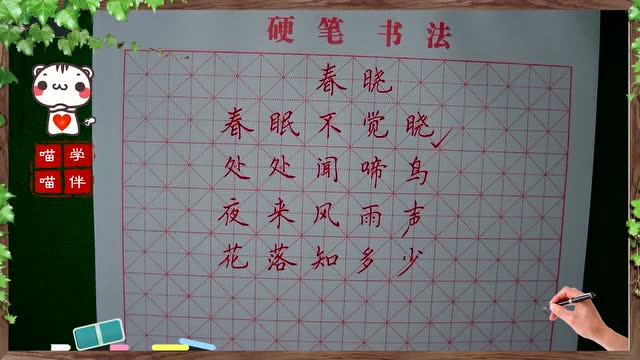 硬笔书法
春晓
春眠不觉晓
处处闻啼鸟
夜来风雨声
花落知多少
喵学
喵伴